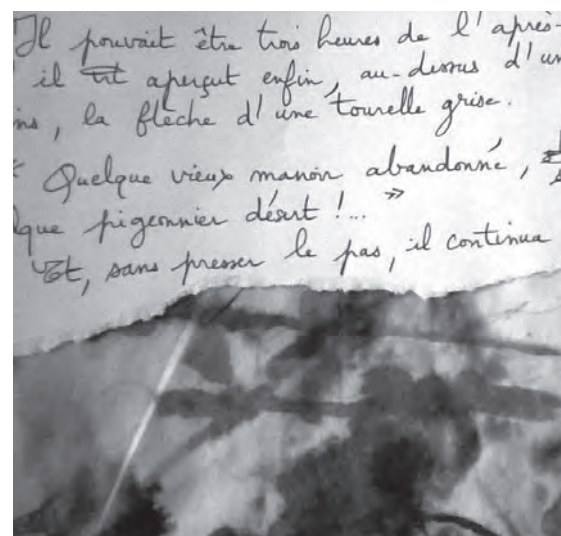 Il pouvait être trois heures de l'après-
il aperçut enfin, au-dessus d'un
ns, la flèche d'une tourelle grise.
Quelque vieux manoir abandonné,
lque pigeonnier désert !... »
Et, sans presser le pas, il continua